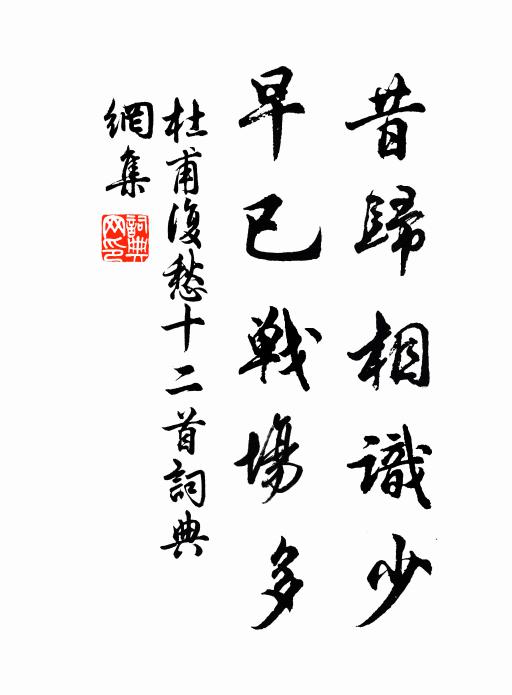 昔歸相識少
早已戰場多
杜甫復愁十二首詞典
網集
詞典網印